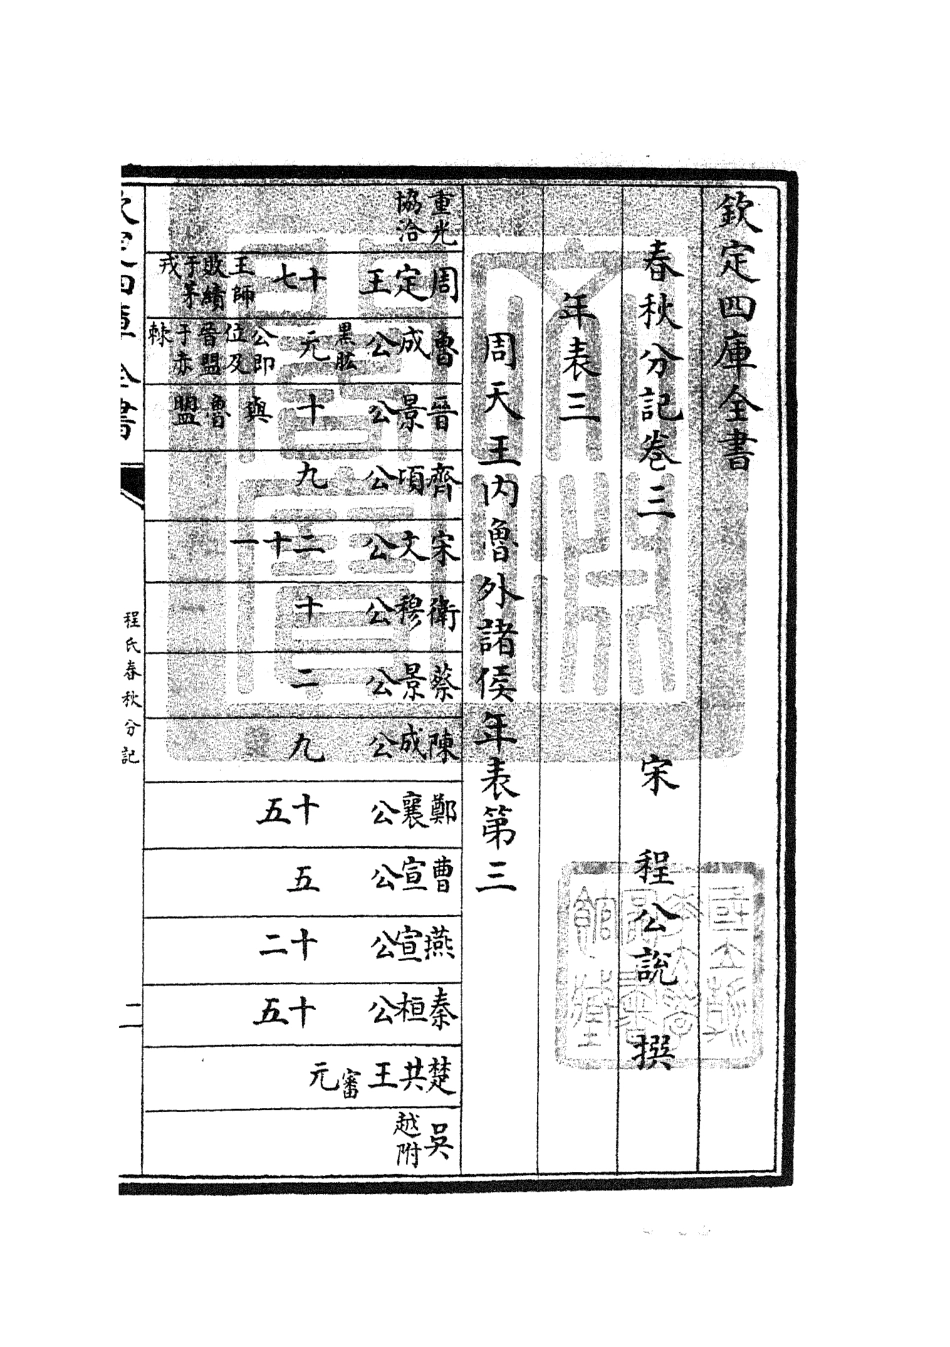 欽定四庫全書
春秋分記卷三
宋 程公說 撰
年表三
周天王內魯外諸侯年表第三
重光協洽
周定王 十七 王師敗績于茅戎
魯成公 黑肱 元 公即位及晉盟于赤棘
晉景公 十 與魯盟
齊頃公 九
宋文公 二十一
衛穆公 十
蔡景公 二
陳成公 九
鄭襄公 十五
曹宣公 五
燕宣公 十二
秦桓公 十五
楚共王 審 元
吳 越附
欽定四庫全書
程氏春秋分記
二